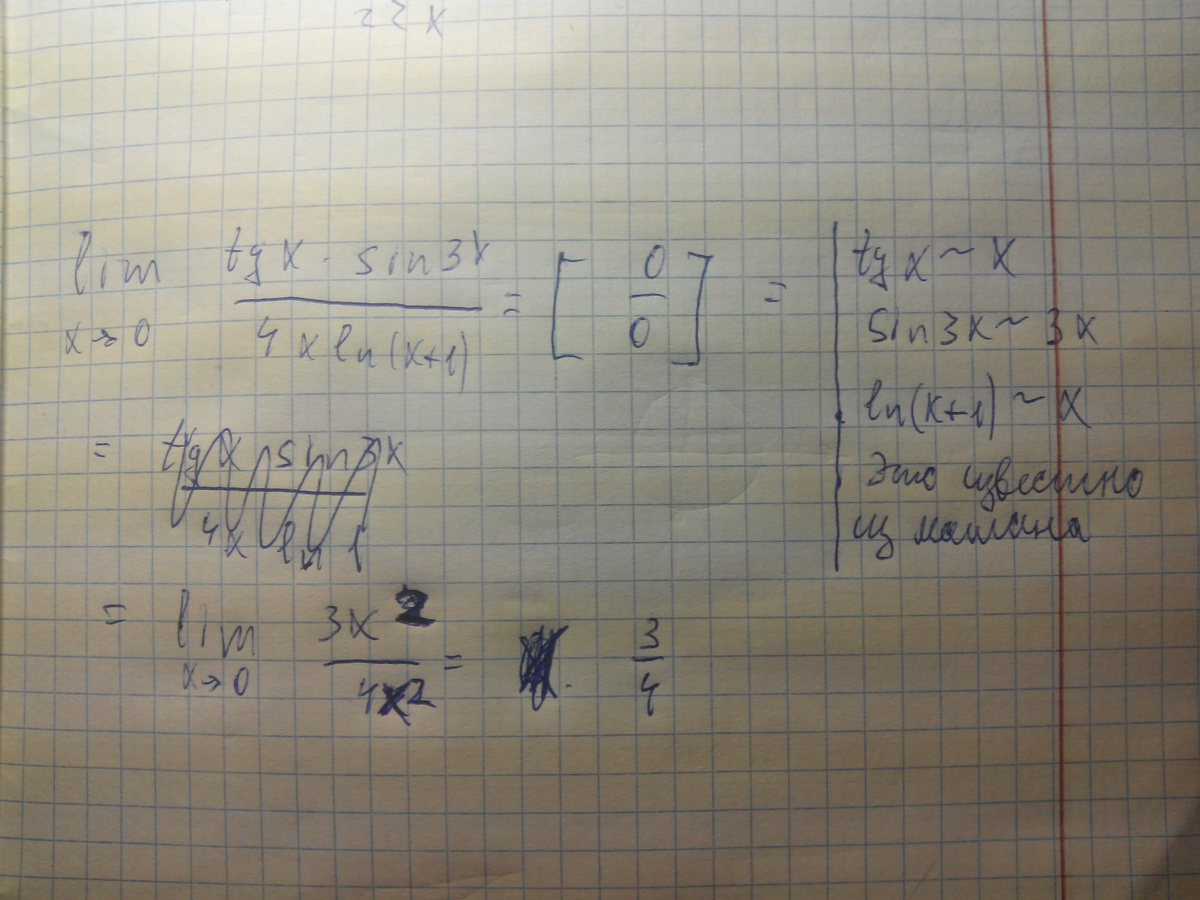 22x
lim tg x · sin 3x / 4x ln(x+1) = [ 0/0 ] =
x→0
tg x ~ x
sin 3x ~ 3x
ln(x+1) ~ x
Это известно
из маплана
= tg x sin 3x / 4x ln 1
= lim 3x2 / 4x2 = 3/4
x→0